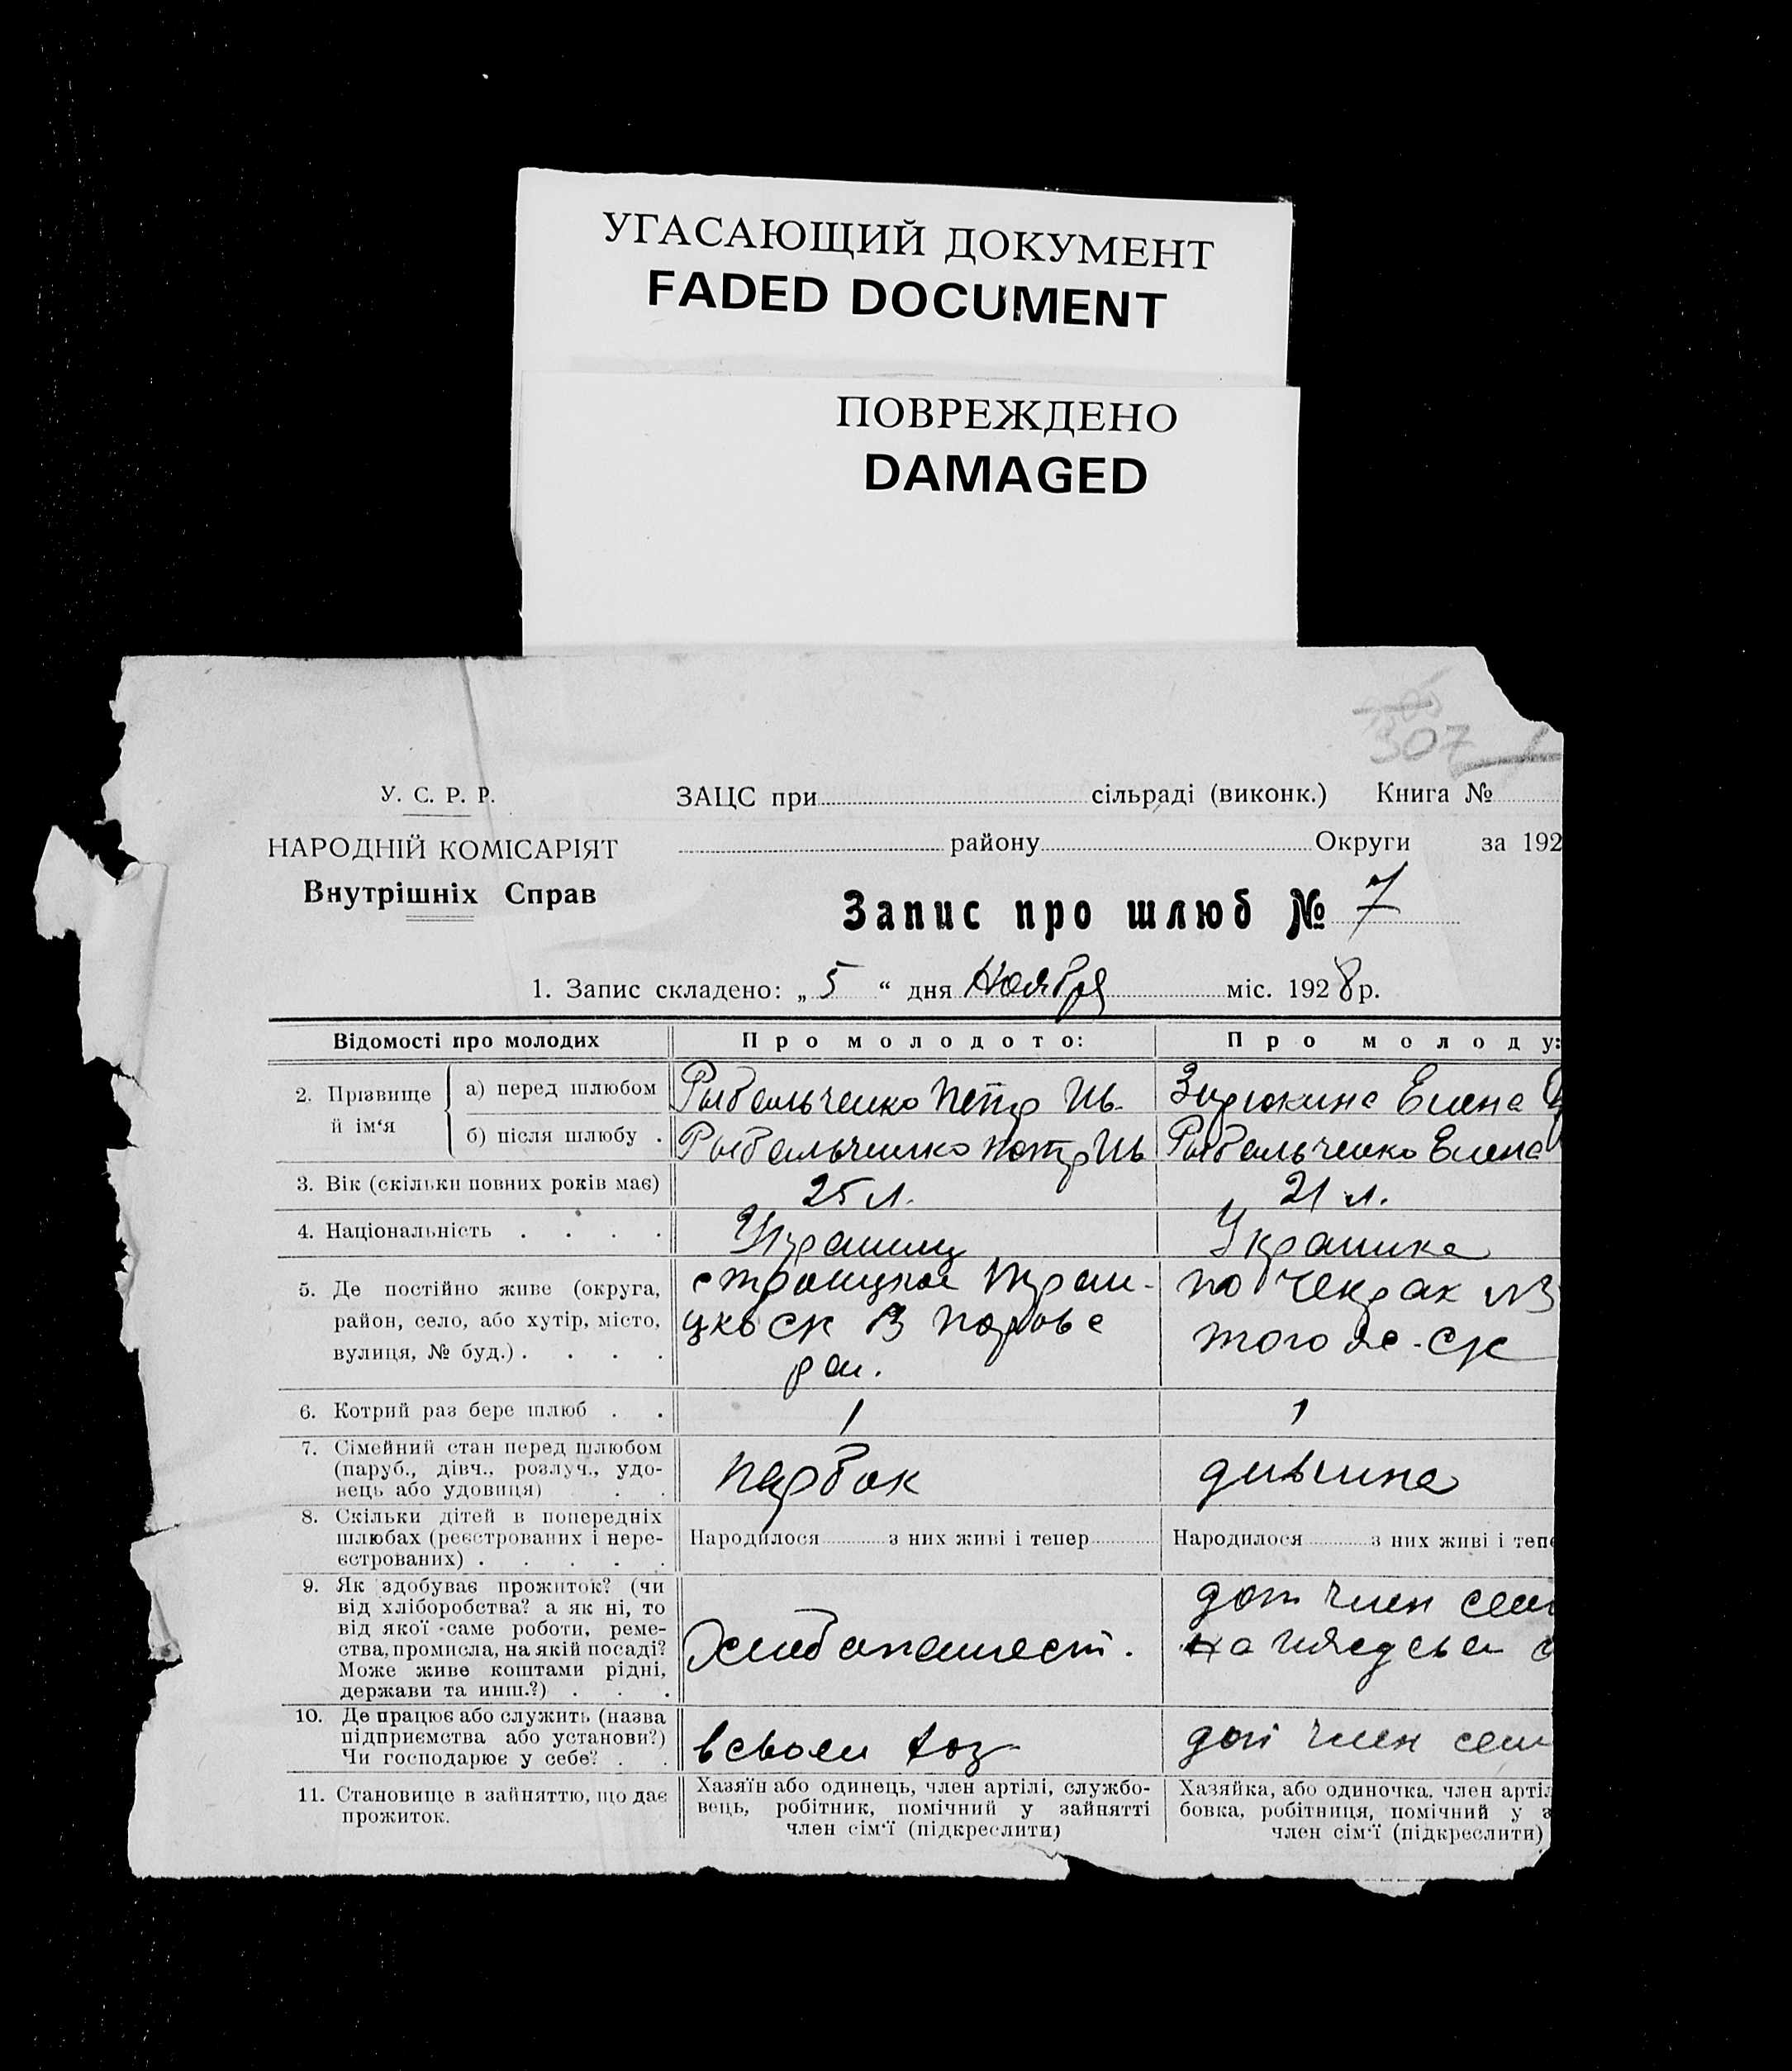 УГАСАЮЩИЙ ДОКУМЕНТ
FADED DOCUMENT
ПОВРЕЖДЕНО
DAMAGED
307
У. С. Р. Р.
НАРОДНІЙ КОМІСАРІЯТ
Внутрішніх Справ
ЗАЦС при сільраді (виконк.) Книга №
району Округи за 192
Запис про шлюб № 7
1. Запис складено: „5“ дня Ноября міс. 1928 р.
Відомості про молодих
Про молодого:
Про молоду:
2. Прізвище й ім‘я
а) перед шлюбом
Рыбальченко Петр Ив.
Зирюкина Елена
б) після шлюбу .
Рыбальченко Петр Ив
Рыбальченко Елена
3. Вік (скільки повних років має)
25 л.
21 л.
4. Національність . . . .
Украинец
Украинка
5. Де постійно живе (округа,
район, село, або хутір, місто,
вулиця, № буд.) . . . .
с Троицкое Трои-
цко ск В Покровс
ран.
по Чекрак №3
того же ск
6. Котрий раз бере шлюб . .
1
1
7. Сімейний стан перед шлюбом
(паруб., дівч., розлуч., удо-
вець або удовиця) . .
парбок
дивчина
8. Скільки дітей в попередніх
шлюбах (реєстрованих і нере-
єстрованих) . . . . .
Народилося з них живі і тепер
Народилося з них живі і тепе
9. Як здобуває прожиток? (чи
від хліборобства? а як ні, то
від якої саме роботи, реме-
ства, промисла, на якій посаді?
Може живе коштами рідні,
держави та инш.?) . . .
Хлибопашест.
доп член сем
на
10. Де працює або служить (назва
підприємства або установи?)
Чи господарює у себе? . .
в своем хоз
доп член сем
11. Становище в зайняттю, що дає
прожиток.
Хазяїн або одинець, член артілі, службо-
вець, робітник, помічний у зайнятті
член сім‘ї (підкреслити)
Хазяйка, або одиночка, член артіл
бовка, робітниця, помічний у з
член сім‘ї (підкреслити)